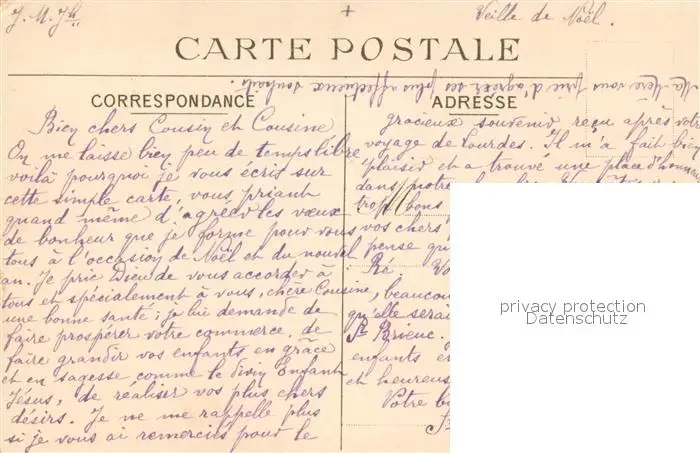 J. M. Jh
+
Veille de Noël.
CARTE POSTALE
Ma Mère vous prie d'agréer ses plus affectueux souhaits.
CORRESPONDANCE
Bien chers Cousin et Cousine
On me laisse bien peu de temps libre
voilà pourquoi je vous écris sur
cette simple carte, vous priant
quand même d'agréer les vœux
de bonheur que je forme pour vous
tous à l'occasion de Noël et du nouvel
an. Je prie Dieu de vous accorder à
tous et spécialement à vous, chère Cousine,
une bonne santé; je lui demande de
faire prospérer votre commerce, de
faire grandir vos enfants en grâce
et en sagesse comme le divin Enfant
Jésus, de réaliser vos plus chers
désirs. Je ne me rappelle plus
si je vous ai remerciés pour le
ADRESSE
gracieux souvenir reçu après votre
voyage de Lourdes. Il m'a fait bien
plaisir et a trouvé une place d'honneur
dans notre
trop bons
vos chers
pense qu
Ré. Vo
beaucou
qu'elle serai
St Brieuc.
enfants
et heureus
Votre
privacy protection
Datenschutz